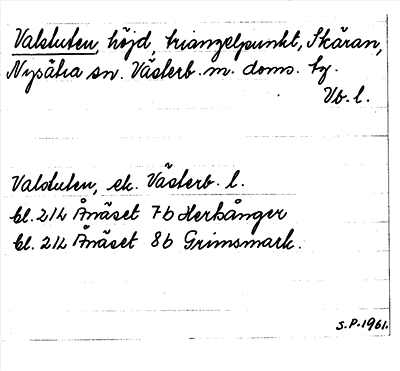 Valstuten, höjd, triangelpunkt, Skäran,
Nysätra sn. Västerb. m. doms. tg.
Vb. l.
Valstuten, ek. Västerb. l.
bl. 21L Ånäset 7b Herkånger
bl. 21L Ånäset 8b Grimsmark.
S.P. 1961.